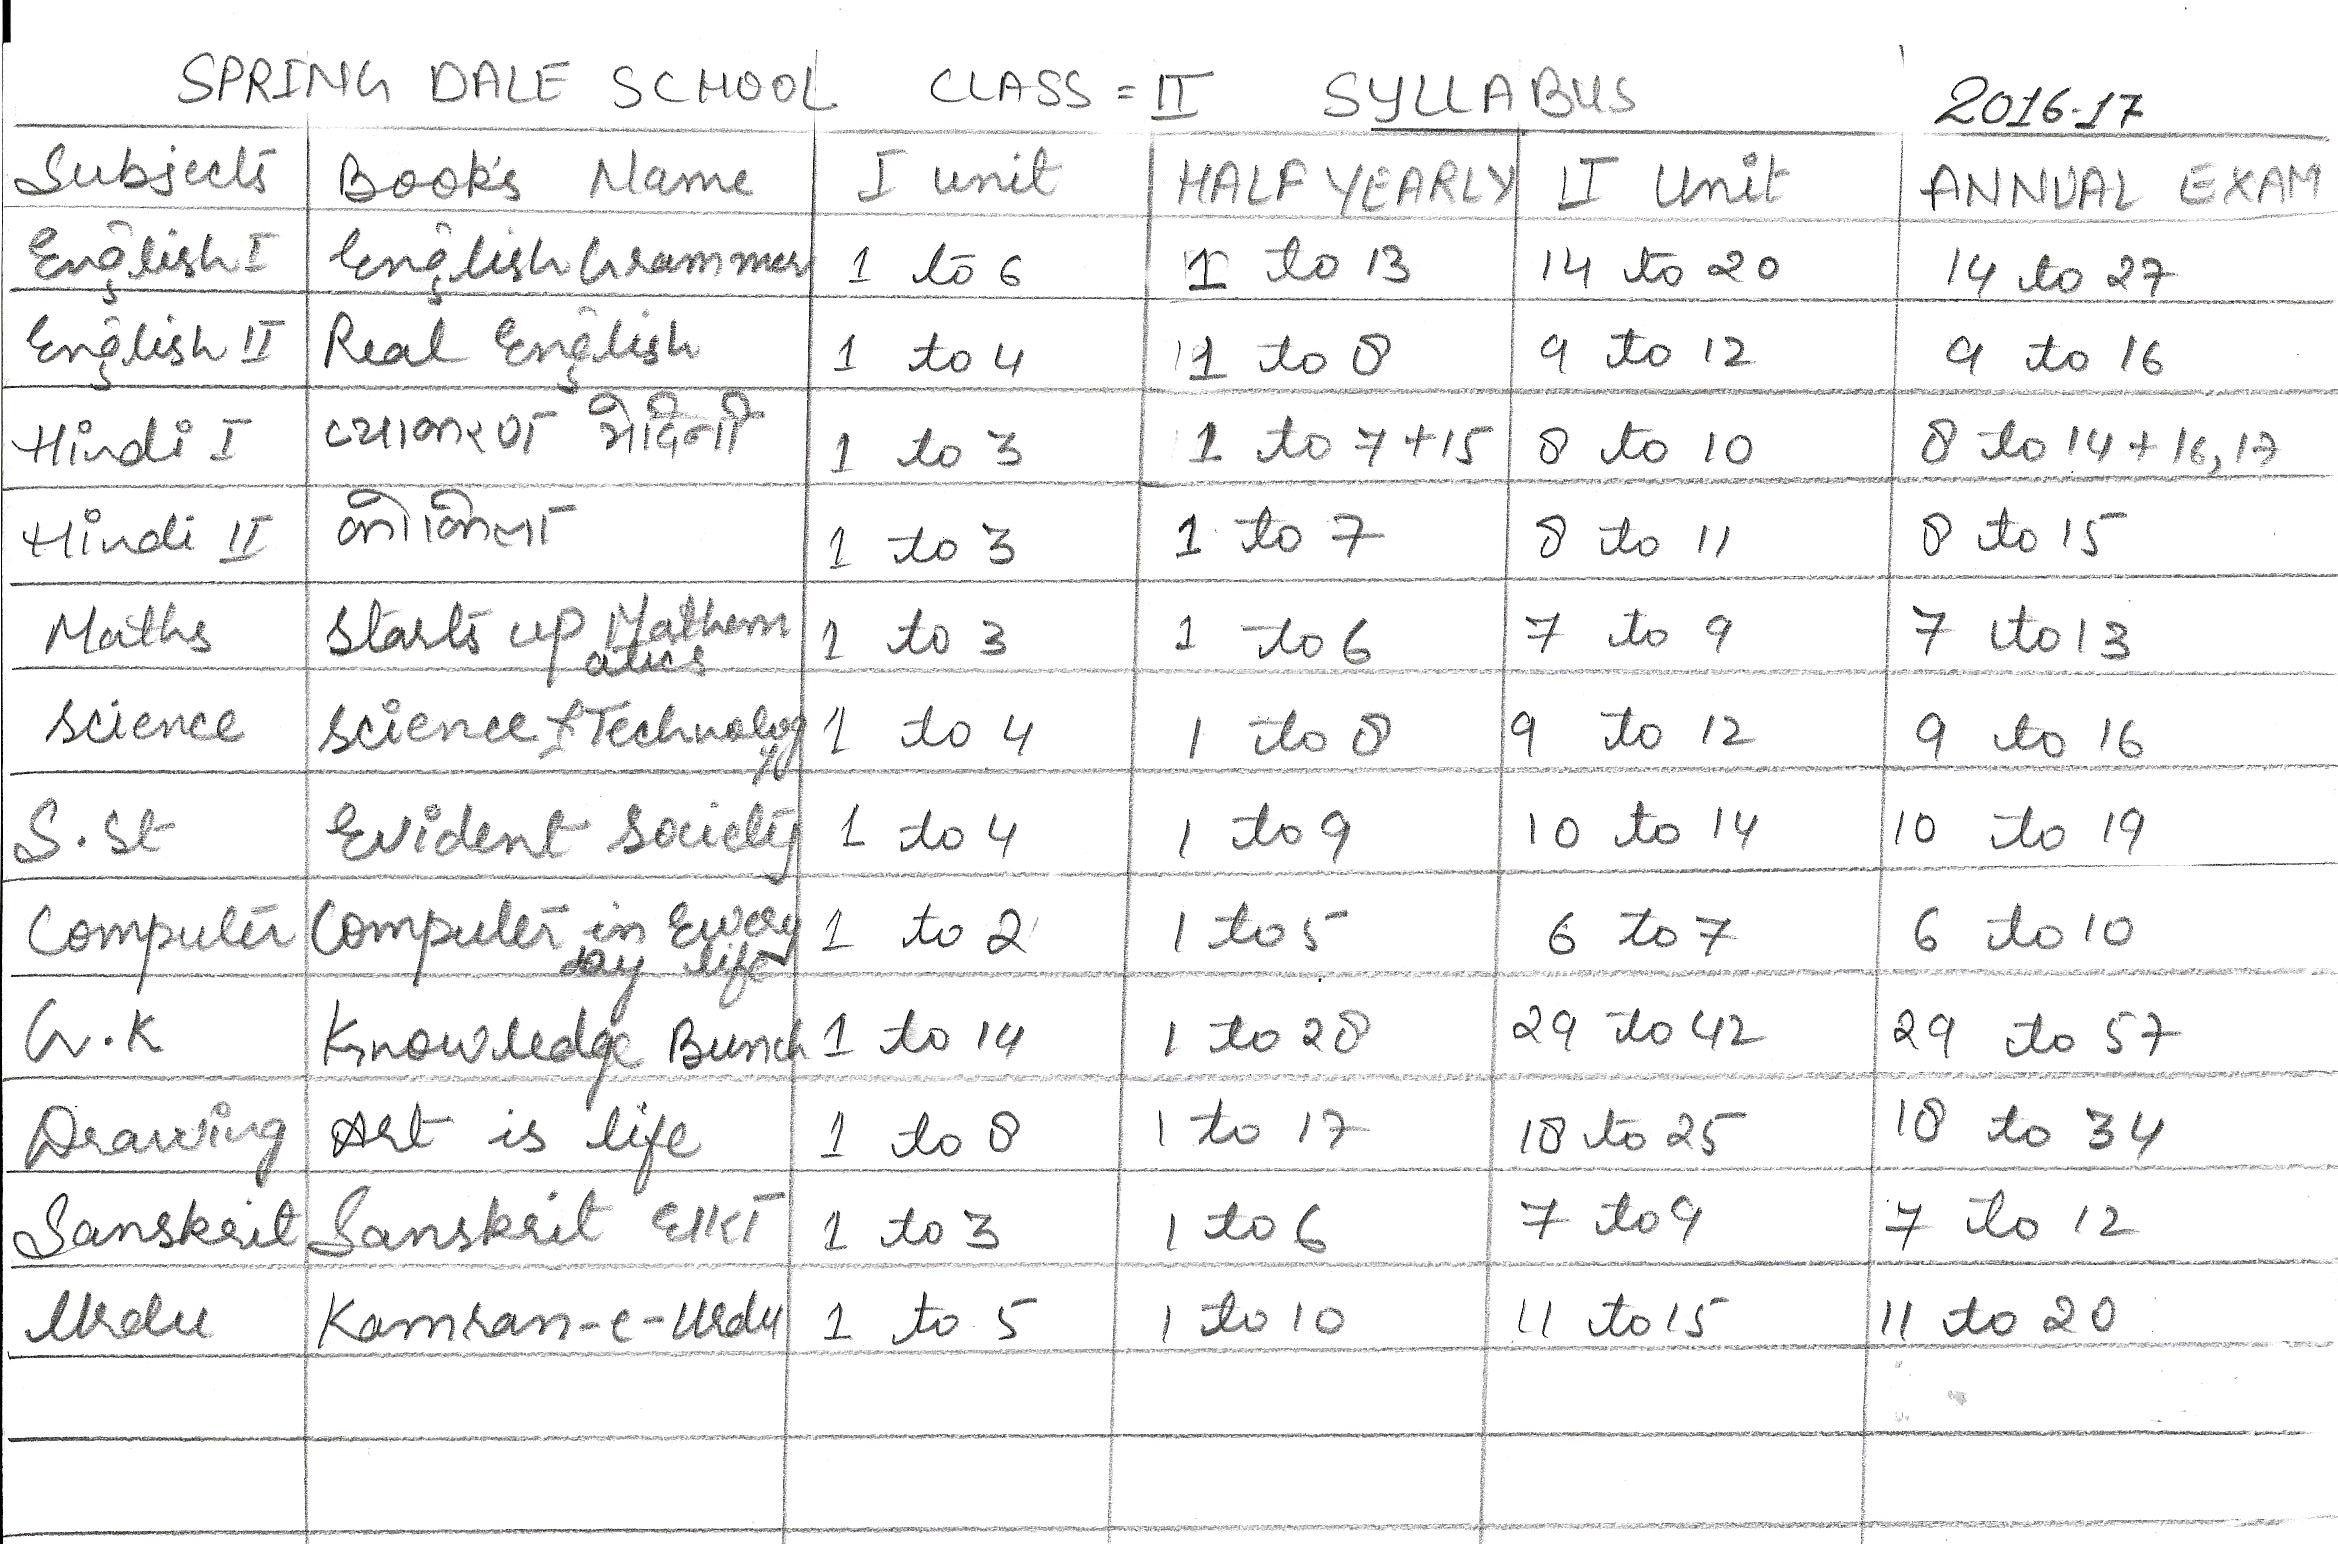 SPRING DALE SCHOOL CLASS = II SYLLABUS 2016-17
Subjects Book's Name I unit HALF YEARLY II Unit ANNUAL EXAM
English I English Grammer 1 to 6 1 to 13 14 to 20 14 to 27
English II Real English 1 to 4 1 to 8 9 to 12 9 to 16
Hindi I व्याकरण 1 to 3 1 to 7 + 15 8 to 10 8 to 14 + 16, 17
Hindi II कोकिला 1 to 3 1 to 7 8 to 11 8 to 15
Maths Starts up Mathematics 1 to 3 1 to 6 7 to 9 7 to 13
Science Science & Technology 1 to 4 1 to 8 9 to 12 9 to 16
S.St Evident Society 1 to 4 1 to 9 10 to 14 10 to 19
Computer Computer in Every day life 1 to 2 1 to 5 6 to 7 6 to 10
G.K Knowledge Bunch 1 to 14 1 to 28 29 to 42 29 to 57
Drawing Art is life 1 to 8 1 to 17 18 to 25 18 to 34
Sanskrit Sanskrit 1 to 3 1 to 6 7 to 9 7 to 12
Urdu Kamran-e-Urdu 1 to 5 1 to 10 11 to 15 11 to 20